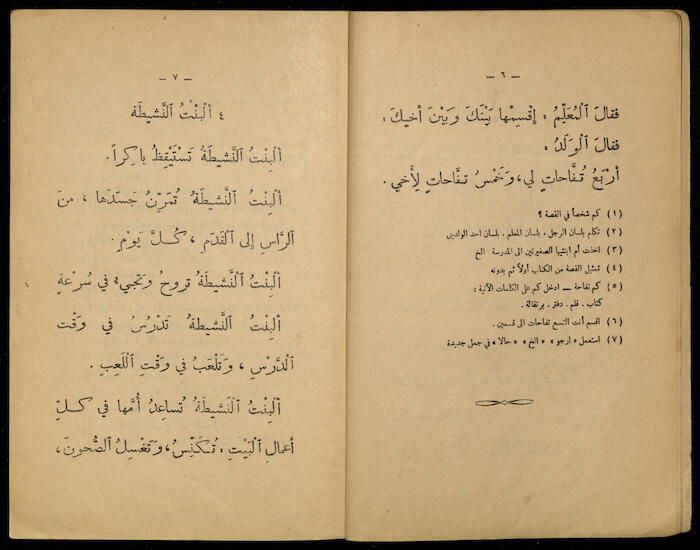 — ٦ —
فقالَ اَلْمُعَلِّمُ : إِقْسِمْها بَيْنَكَ وَبَيْنَ أخيكَ :
فقالَ اَلْوَلَدُ :
أَرْبَعُ تُفَّاحاتٍ لي، وَخَمْسُ تفَّاحاتٍ لِأَخي .
(١) كم شخصاً في القصة ؟
(٢) تكلم بلسان الرجل . بلسان المعلم . بلسان احد الولدين
(٣) اخذت أم ابنتيها الصغيرتين الى المدرسة الخ
(٤) تمثيل القصة من الكتاب أولاً ثم بدونه
(٥) كم تفاحة — ادخل كم على الكلمات الآتية :
كتاب . قلم . دفتر . برتقالة .
(٦) اقسم أنت التسع تفاحات الى قسمين .
(٧) استعمل « ارجو » « الخ » « حالا » في جمل جديدة
— ٧ —
٤ اَلْبنْتُ اَلنَّشيطَة
اَلْبِنْتُ اَلنَّشيطَةُ تَسْتَيْقِظُ باكِراً .
اَلْبِنْتُ اَلنَّشيطَةُ تُمَرِّنُ جَسَدَها ، مِنَ
الرَّاسِ إلى اَلْقَدَمِ ، كُلَّ يَوْمٍ .
اَلْبِنْتُ اَلنَّشيطَةُ تروحُ وَتجيءُ في سُرْعَةٍ
اَلْبِنْتُ اَلنَّشيطةُ تَدْرُسُ في وَقْت
اَلدَّرْسِ ، وَتَلْعَبُ في وَقْتِ اَللَّعِبِ .
اَلْبِنْتُ اَلنَّشيطَةُ تُساعِدُ أُمَّها في كلِّ
أعمالِ اَلْبَيْتِ : تُكَنِّسُ، وَتَغْسِلُ اَلصُّحونَ،